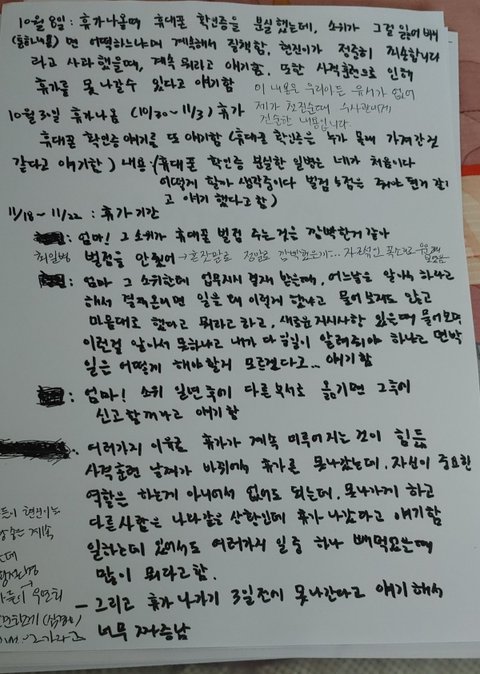 10월 8일 : 휴가나올때 휴대폰 확인증을 분실했는데, 소위가 그걸 잃어버리
면 어떡하느냐며 계속해서 질책함, 현진이가 정중히 죄송합니다
라고 사과했을때, 계속 뭐라고 얘기함. 또한 사격훈련으로 인해
휴가를 못나갈수 있다고 얘기함
이 내용은 우리아들 유서가 없어
제가 첫진술때 수사관에게
진술한 내용입니다
10월 30일 휴가나옴 (10/30 ~ 11/3) 휴가
휴대폰 확인증 얘기를 또 얘기함 (휴대폰 확인증은 누가 몰래 가져간것
같다고 얘기함) 내용:(휴대폰 확인증 분실한 일병은 네가 처음이다
어떻게 할까 생각중이다 벌점 몇점은 줘야 된거 같다
고 얘기 했다고 함)
11/18 ~ 11/22 : 휴가기간
: 엄마! 그 소위가 휴대폰 벌점 주는것은 깜박한거 같아
벌점을 안줬어 → 혼잣말로 정말로 깜박했을까...
: 엄마 그 소위한테 업무지시 결재 받을때, 어느날은 알아서 하라고
해서 결재올리면 일을 왜 이렇게 했냐고 물어보지도 않고
마음대로 했다고 뭐라고 하고, 새로운 지시사항 있을때 물어보면
이런걸 알아서 못하냐고 내가 다 일일이 알려줘야 하냐고 면박
일은 어떻게 해야할지 모르겠다고... 얘기함
: 엄마! 소위 일년 후에 다른부서로 옮기면 그후에
신고할꺼라고 얘기함
여러가지 이유로 휴가가 계속 미루어지는 것이 힘듦
사격훈련 날짜가 바뀌어서 휴가를 못나갔는데, 자신이 중요한
역할은 하는게 아니어서 없어도 되는데, 못나가게 하고
다른사람은 나와같은 상황인데 휴가 나갔다고 얘기함
일하는데 있어서도 여러가지 일 중 하나 빼먹었을때
많이 뭐라고함.
- 그리고 휴가 나가기 3일전에 못나간다고 얘기해서
너무 짜증남
현진이는
계속